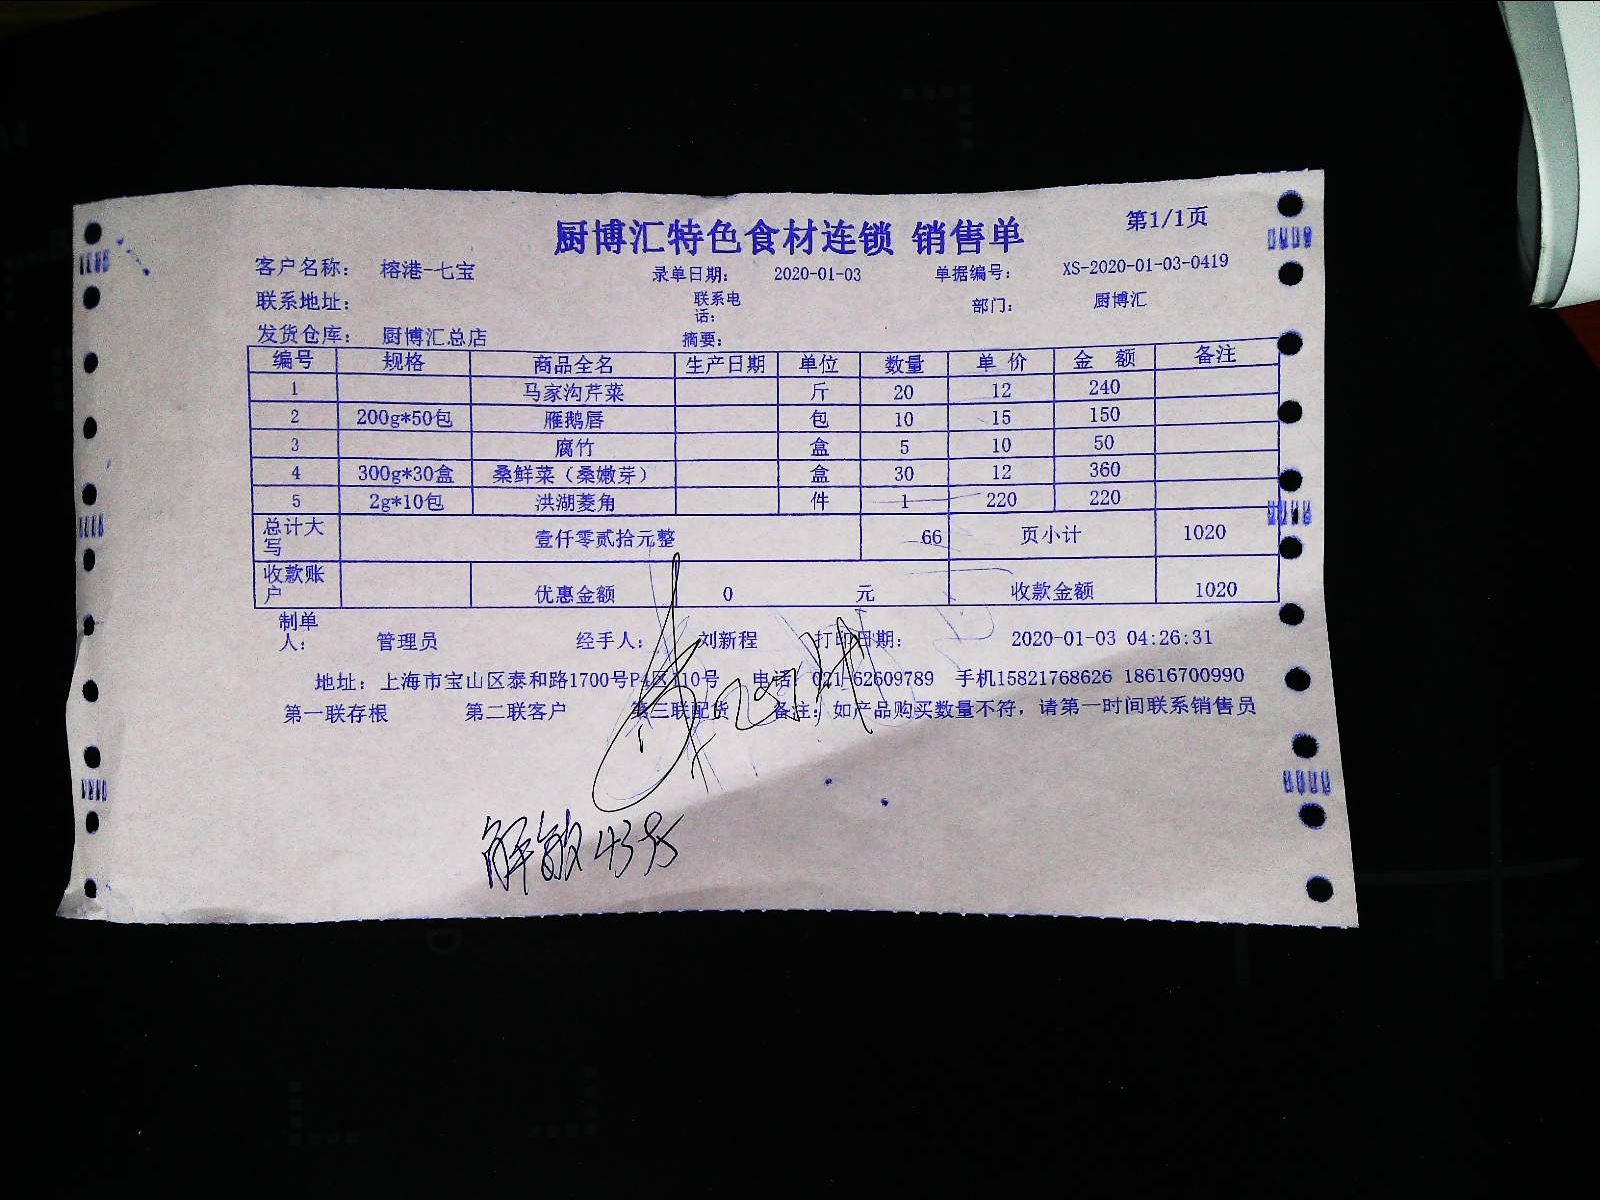 厨博汇特色食材连锁 销售单 第1/1页
客户名称： 榕港-七宝 录单日期： 2020-01-03 单据编号： XS-2020-01-03-0419
联系地址： 联系电话： 部门： 厨博汇
发货仓库： 厨博汇总店 摘要：
编号 规格 商品全名 生产日期 单位 数量 单 价 金 额 备注
1 马家沟芹菜 斤 20 12 240
2 200g*50包 雁鹅唇 包 10 15 150
3 腐竹 盒 5 10 50
4 300g*30盒 桑鲜菜（桑嫩芽） 盒 30 12 360
5 2g*10包 洪湖菱角 件 1 220 220
总计大写 壹仟零贰拾元整 66 页小计 1020
收款账户 优惠金额 0 元 收款金额 1020
制单人： 管理员 经手人： 刘新程 打印日期： 2020-01-03 04:26:31
地址：上海市宝山区泰和路1700号P4区110号 电话：021-62609789 手机15821768626 18616700990
第一联存根 第二联客户 第三联配货 备注：如产品购买数量不符，请第一时间联系销售员